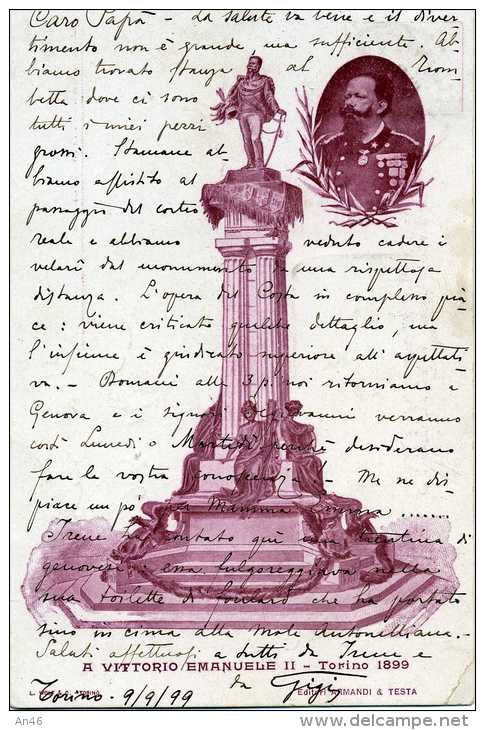 Caro Papà - La salute va bene e il diver
timento non è grande, ma sufficiente. Ab
biamo trovato stanza al Trom
betta dove ci sono
tutti i miei pezzi
grossi. Stamane ab
biamo assistito al
passaggio del corteo
reale e abbiamo veduto cadere i
velari dal monumento da una rispettosa
distanza. L'opera del Costa in complesso pia
ce: viene criticato qualche dettaglio, ma
l'insieme è giudicato superiore all'aspettati
va. - Domani alle 3 p. noi ritorniamo a
Genova e i signori Degiovanni verranno
costì Lunedì o Martedì perchè desiderano
fare la vostra conoscenza! - Me ne dis
piace un pò per Mamma
Irene ha contato qui una trentina di
genovesi: essa fulgoreggiava nella
sua toilette di foulard che ha portato
sino in cima alla Mole Antonelliana. -
Saluti affettuosi a tutti da Irene e
A VITTORIO EMANUELE II - Torino 1899
da Gigi
TORINO
Editori ARMANDI & TESTA
Torino - 9/9/99
An46
delcampe.net